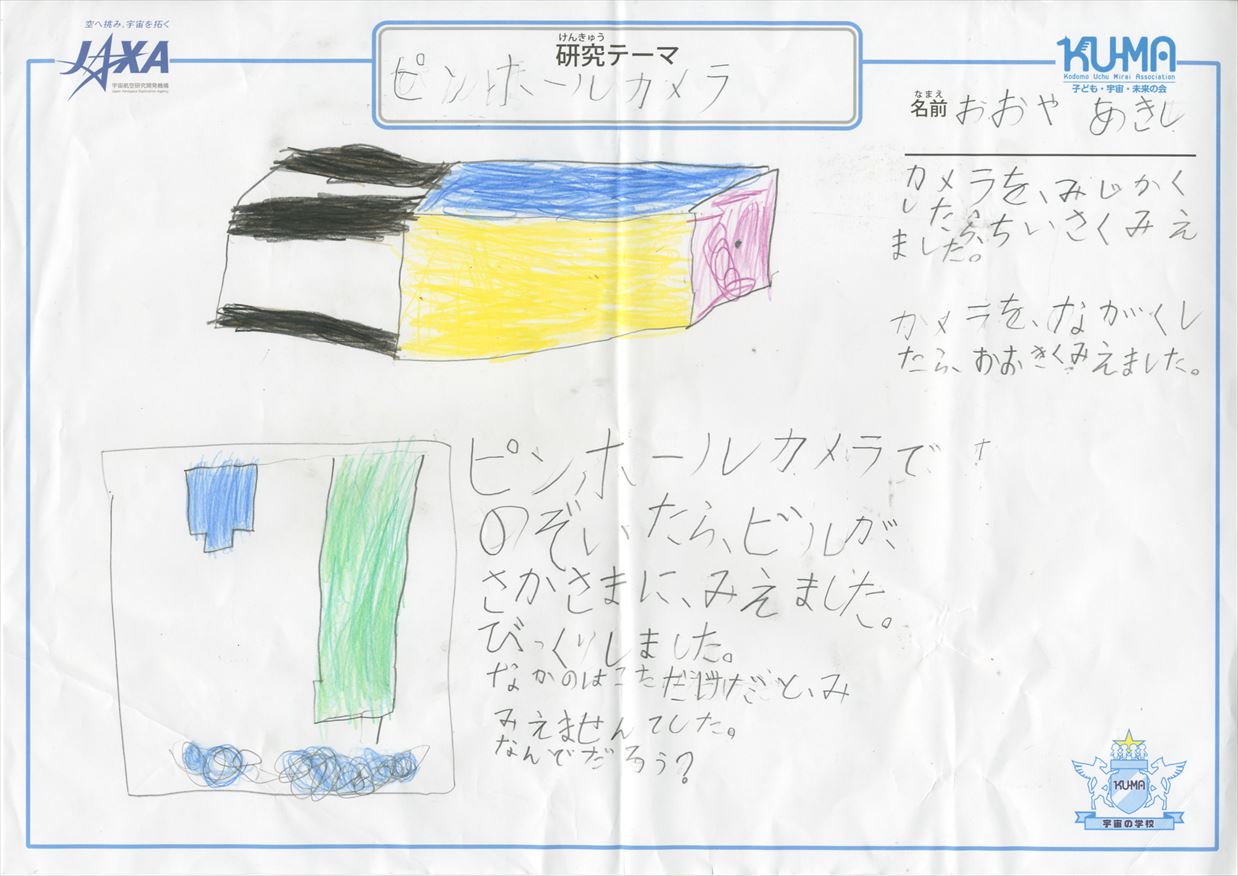 空へ挑み、宇宙を拓く
JAXA
宇宙航空研究開発機構
Japan Aerospace Exploration Agency
けんきゅう
研究テーマ
ピンホールカメラ
KU-MA
Kodomo Uchu Mirai Association
子ども・宇宙・未来の会
なまえ
名前 おおや あきし
カメラを、みじかく
したら、ちいさくみえ
ました。
カメラを、ながくし
たら、おおきくみえました。
ピンホールカメラで
のぞいたら、ビルが、
さかさまに、みえました。
びっくりしました。
なかのはこただけだと、み
みえませんでした。
なんでだろう?
KU-MA
宇宙の学校